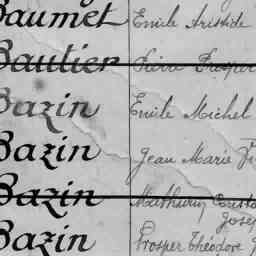 Baumet Emile Aristide
Bautier Pierre Prosper
Bazin Emile Michel
Bazin Jean Marie
Bazin Mathurin
Joseph
Bazin Prosper Théodore